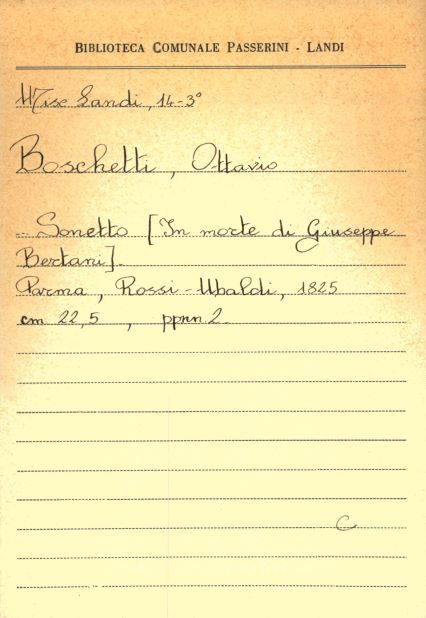 BIBLIOTECA COMUNALE PASSERINI - LANDI
Misc Landi, 14-3°
Boschetti, Ottavio
- Sonetto [In morte di Giuseppe
Bertani].
Parma, Rossi-Ubaldi, 1825
cm 22,5 , ppnn 2.
C